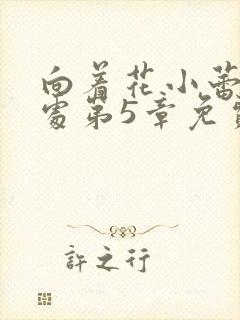 向着花小蕾
处第5章免费
許之行